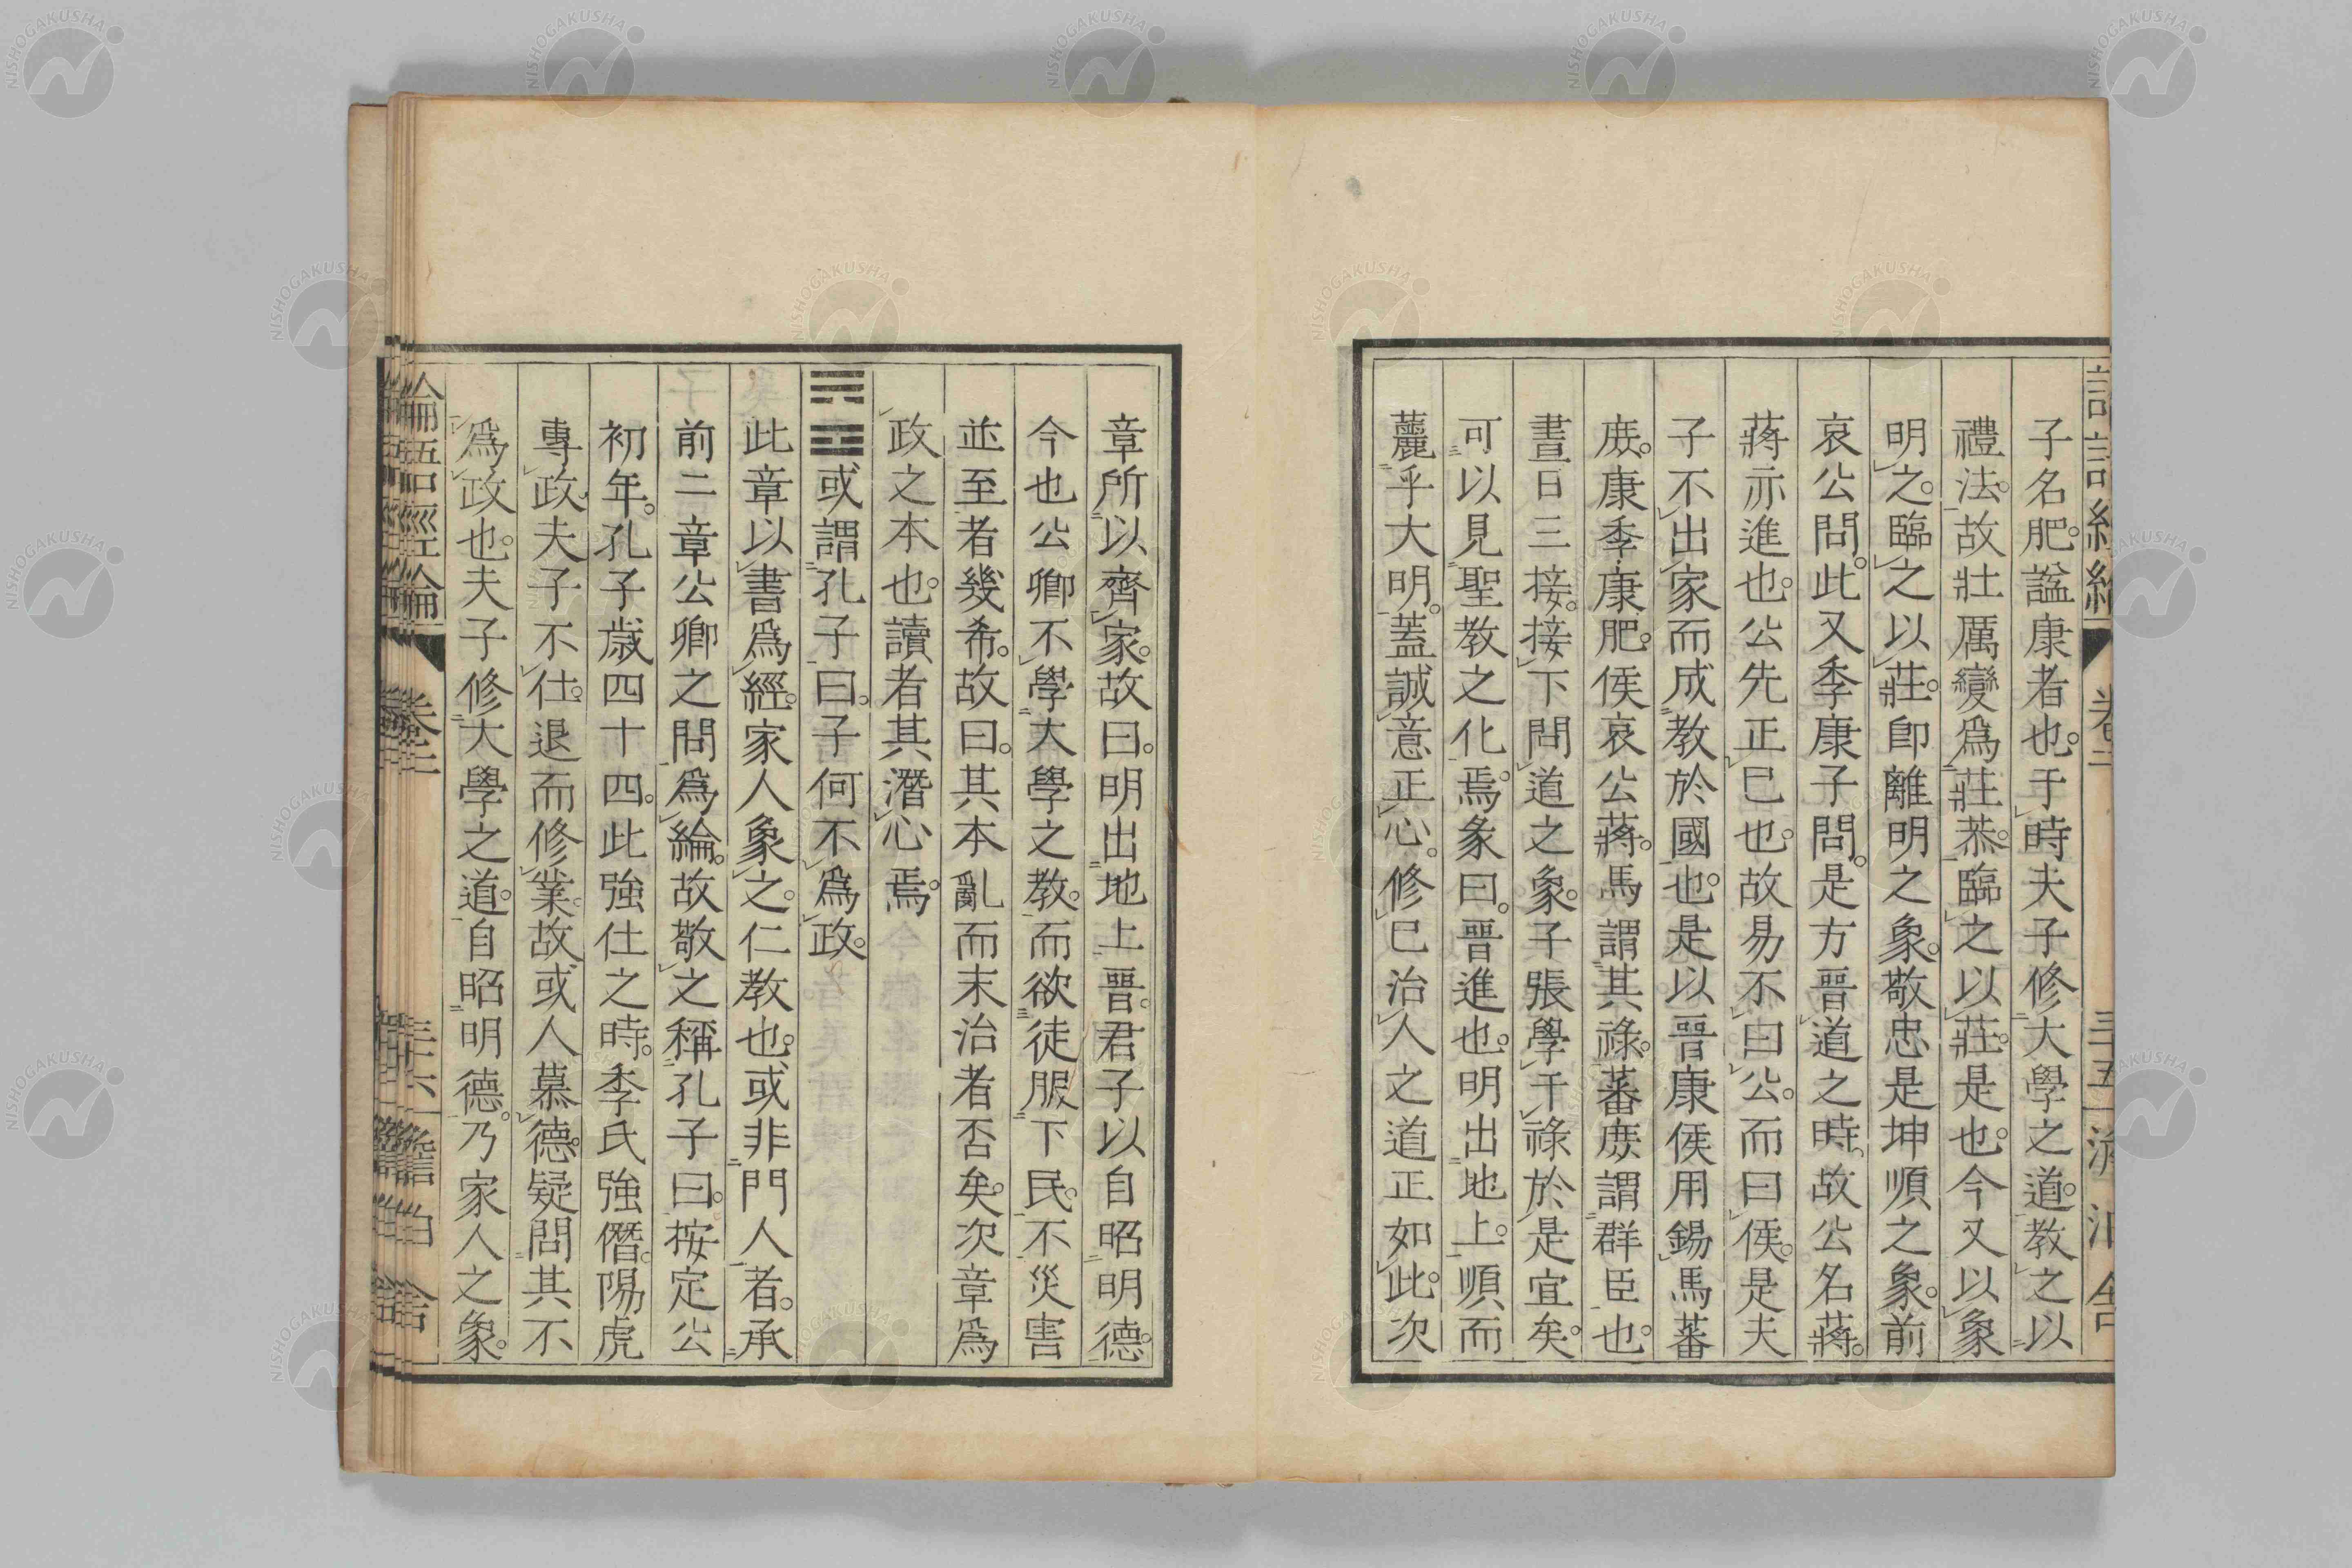 子名肥。諡康者也。于時夫子修大學之道。教之以
禮法。故壯厲變爲莊恭。臨之以莊。是也。今又以象
明之。臨之以莊。卽離明之象。敬忠是坤順之象。前
哀公問。此又季康子問。是方晋道之時。故公名蔣。
蔣亦進也。公先正已也。故易不曰公。而曰侯。是夫
子不出家而成教於國也。是以晋康侯用錫馬蕃
庶。康季康肥。侯哀公蔣。馬謂其祿。蕃庶謂群臣也。
晝日三接。接下問道之象。子張學干祿於是宜矣。
可以見聖教之化焉。彖曰。晋進也。明出地上。順而
麗乎大明。蓋誠意正心。修已治人之道正如此。次
章所以齊家。故曰。明出地上晋。君子以自昭明德。
今也公卿不學大學之教。而欲徒服下民。不災害
並至者幾希。故曰。其本亂而末治者否矣。次章爲
政之本也。讀者其潛心焉。
䷤或謂孔子曰。子何不爲政。
此章以書爲經。家人象之。仁教也。或非門人者。承
前二章公卿之問爲綸。故敬之稱孔子曰。按定公
初年。孔子歲四十四。此強仕之時。季氏強僭。陽虎
專政。夫子不仕。退而修業。故或人慕德。疑問其不
爲政也。夫子修大學之道。自昭明德。乃家人之象。
論語經綸 卷二